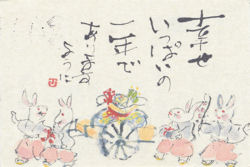 幸せ
いっぱいの
一年で
あります
ように